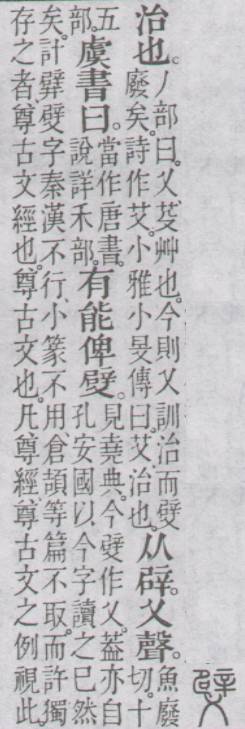 治也。丿部曰。乂芟艸也。今則乂訓治而廢矣。詩作艾。小雅小旻傳曰。艾治也。从辟。乂聲。魚廢切。十
五部。虞書曰。當作唐書。說詳禾部。有能俾。見堯典。今作乂。葢亦自孔安國以今字讀之已然
矣。計字秦漢不行。小篆不用。倉頡等篇不取。而許獨存之者。尊古文經也。尊古文也。凡尊經尊古文之例視此。